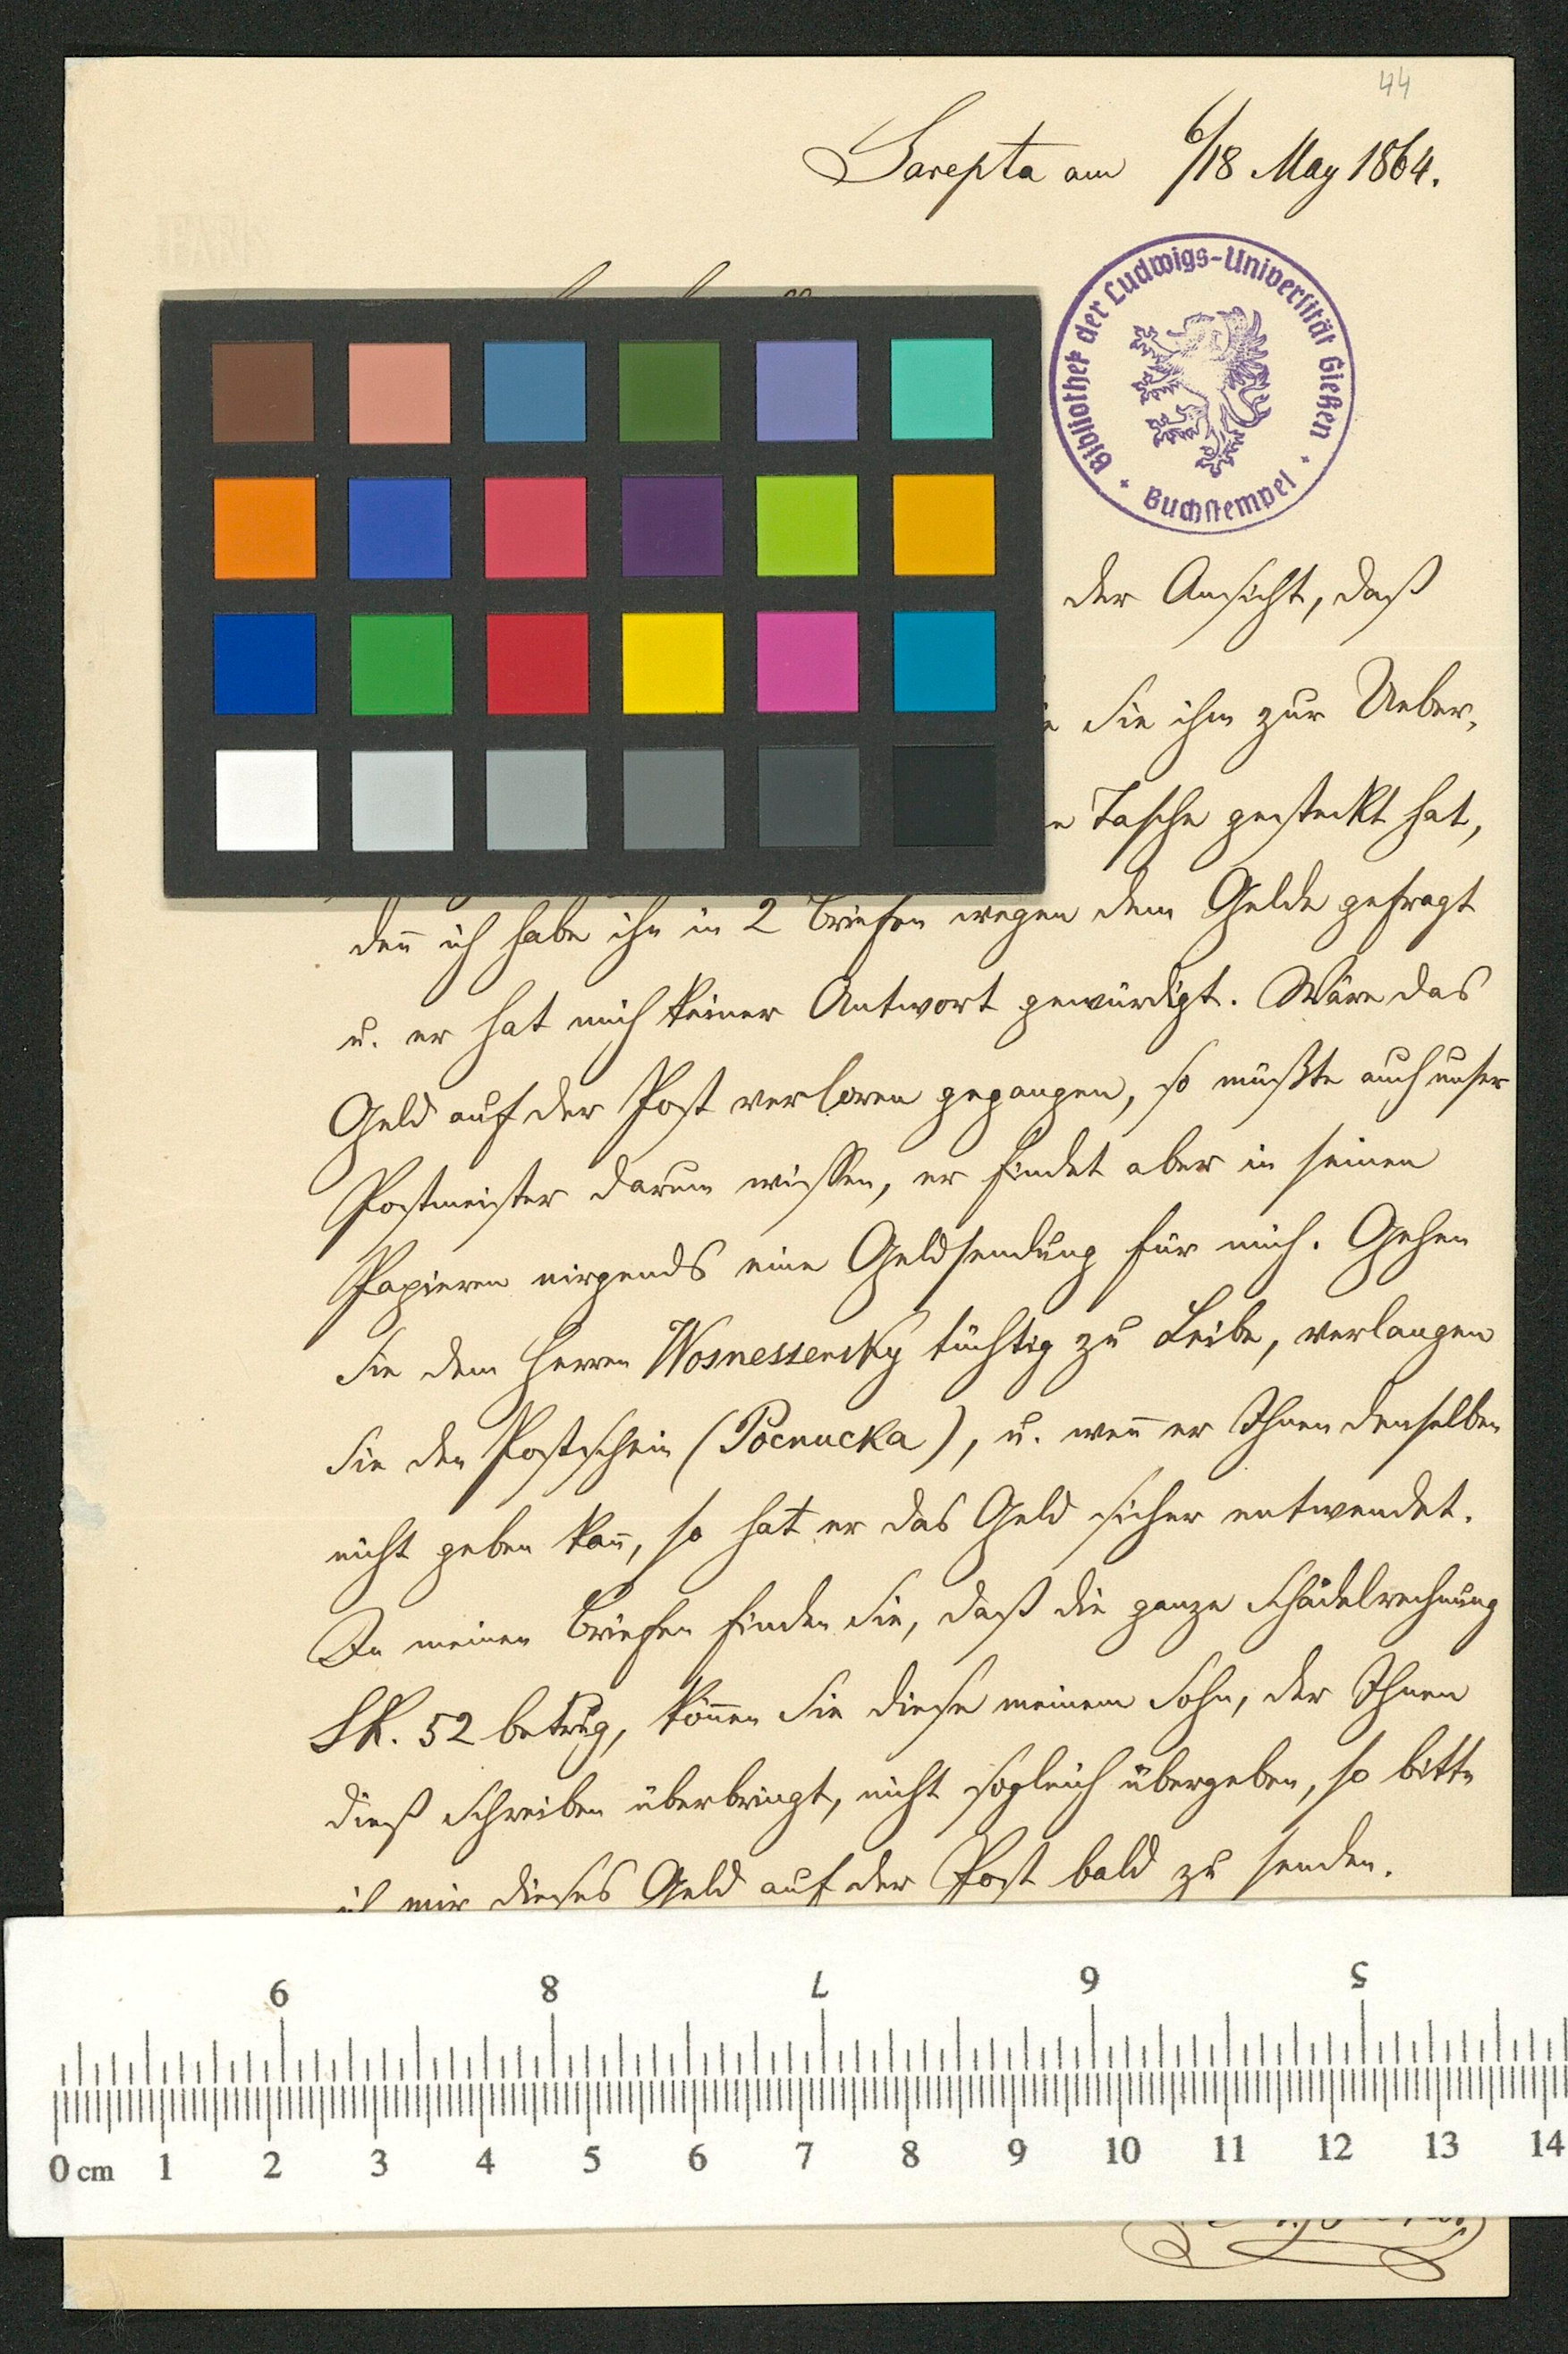 44
Sarepta am 6/18 May 1864.
Bibliothek der Ludwigs-Universität Gießen
Buchstempel
der Ansicht, daß
Sie ihm zur Ueber-
Tasche gesteckt hat,
den̄ ich habe ihn in 2 Briefen wegen dem Gelde gefragt
u. er hat mich keiner Antwort gewürdigt. Wäre das
Geld auf der Post verloren gegangen, so müßte auch unser
Postmeister darum wissen, er findet aber in seinen
Papieren nirgends eine Geldsendung für mich. Gehen
Sie dem Herren Wosnessensky tüchtig zu Leibe, verlangen
Sie den Postschein (Росписка), u. wen̄ er Ihnen denselben
nicht geben kan̄, so hat er das Geld sicher entwendet.
In meinen Briefen finden Sie, daß die ganze Schädelrechnung
SR. 52 betrug, kön̄en Sie diese meinem Sohn, der Ihnen
dieß Schreiben überbringt, nicht sogleich übergeben, so bitte
ich mir dieses Geld auf der Post bald zu senden.
9 8 7 6 5
0 cm 1 2 3 4 5 6 7 8 9 10 11 12 13 14